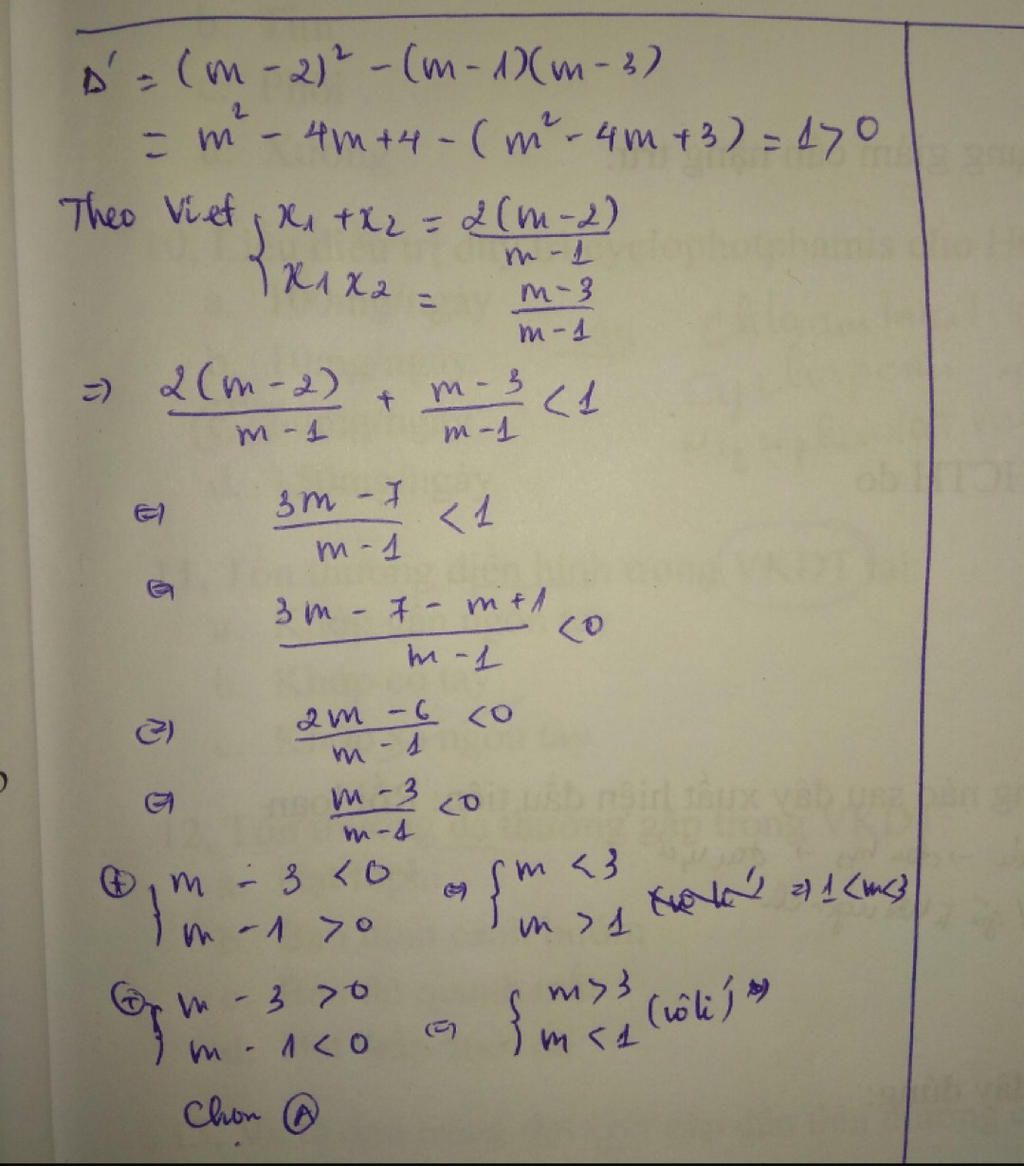 Δ' = (m - 2)² - (m - 1)(m - 3)
= m² - 4m + 4 - (m² - 4m + 3) = 1 > 0
Theo Viet { x1 + x2 = 2(m - 2) / m - 1
x1 x2 = m - 3 / m - 1
=> 2(m - 2) / m - 1 + m - 3 / m - 1 < 1
⇔ 3m - 7 / m - 1 < 1
⇔ 3m - 7 - m + 1 / m - 1 < 0
⇔ 2m - 6 / m - 1 < 0
⇔ m - 3 / m - 1 < 0
⊕ { m - 3 < 0 ⇔ { m < 3
m - 1 > 0 m > 1 => 1 < m < 3
⊕ { m - 3 > 0 ⇔ { m > 3
m - 1 < 0 m < 1 (vô lí)
Chọn Ⓐ